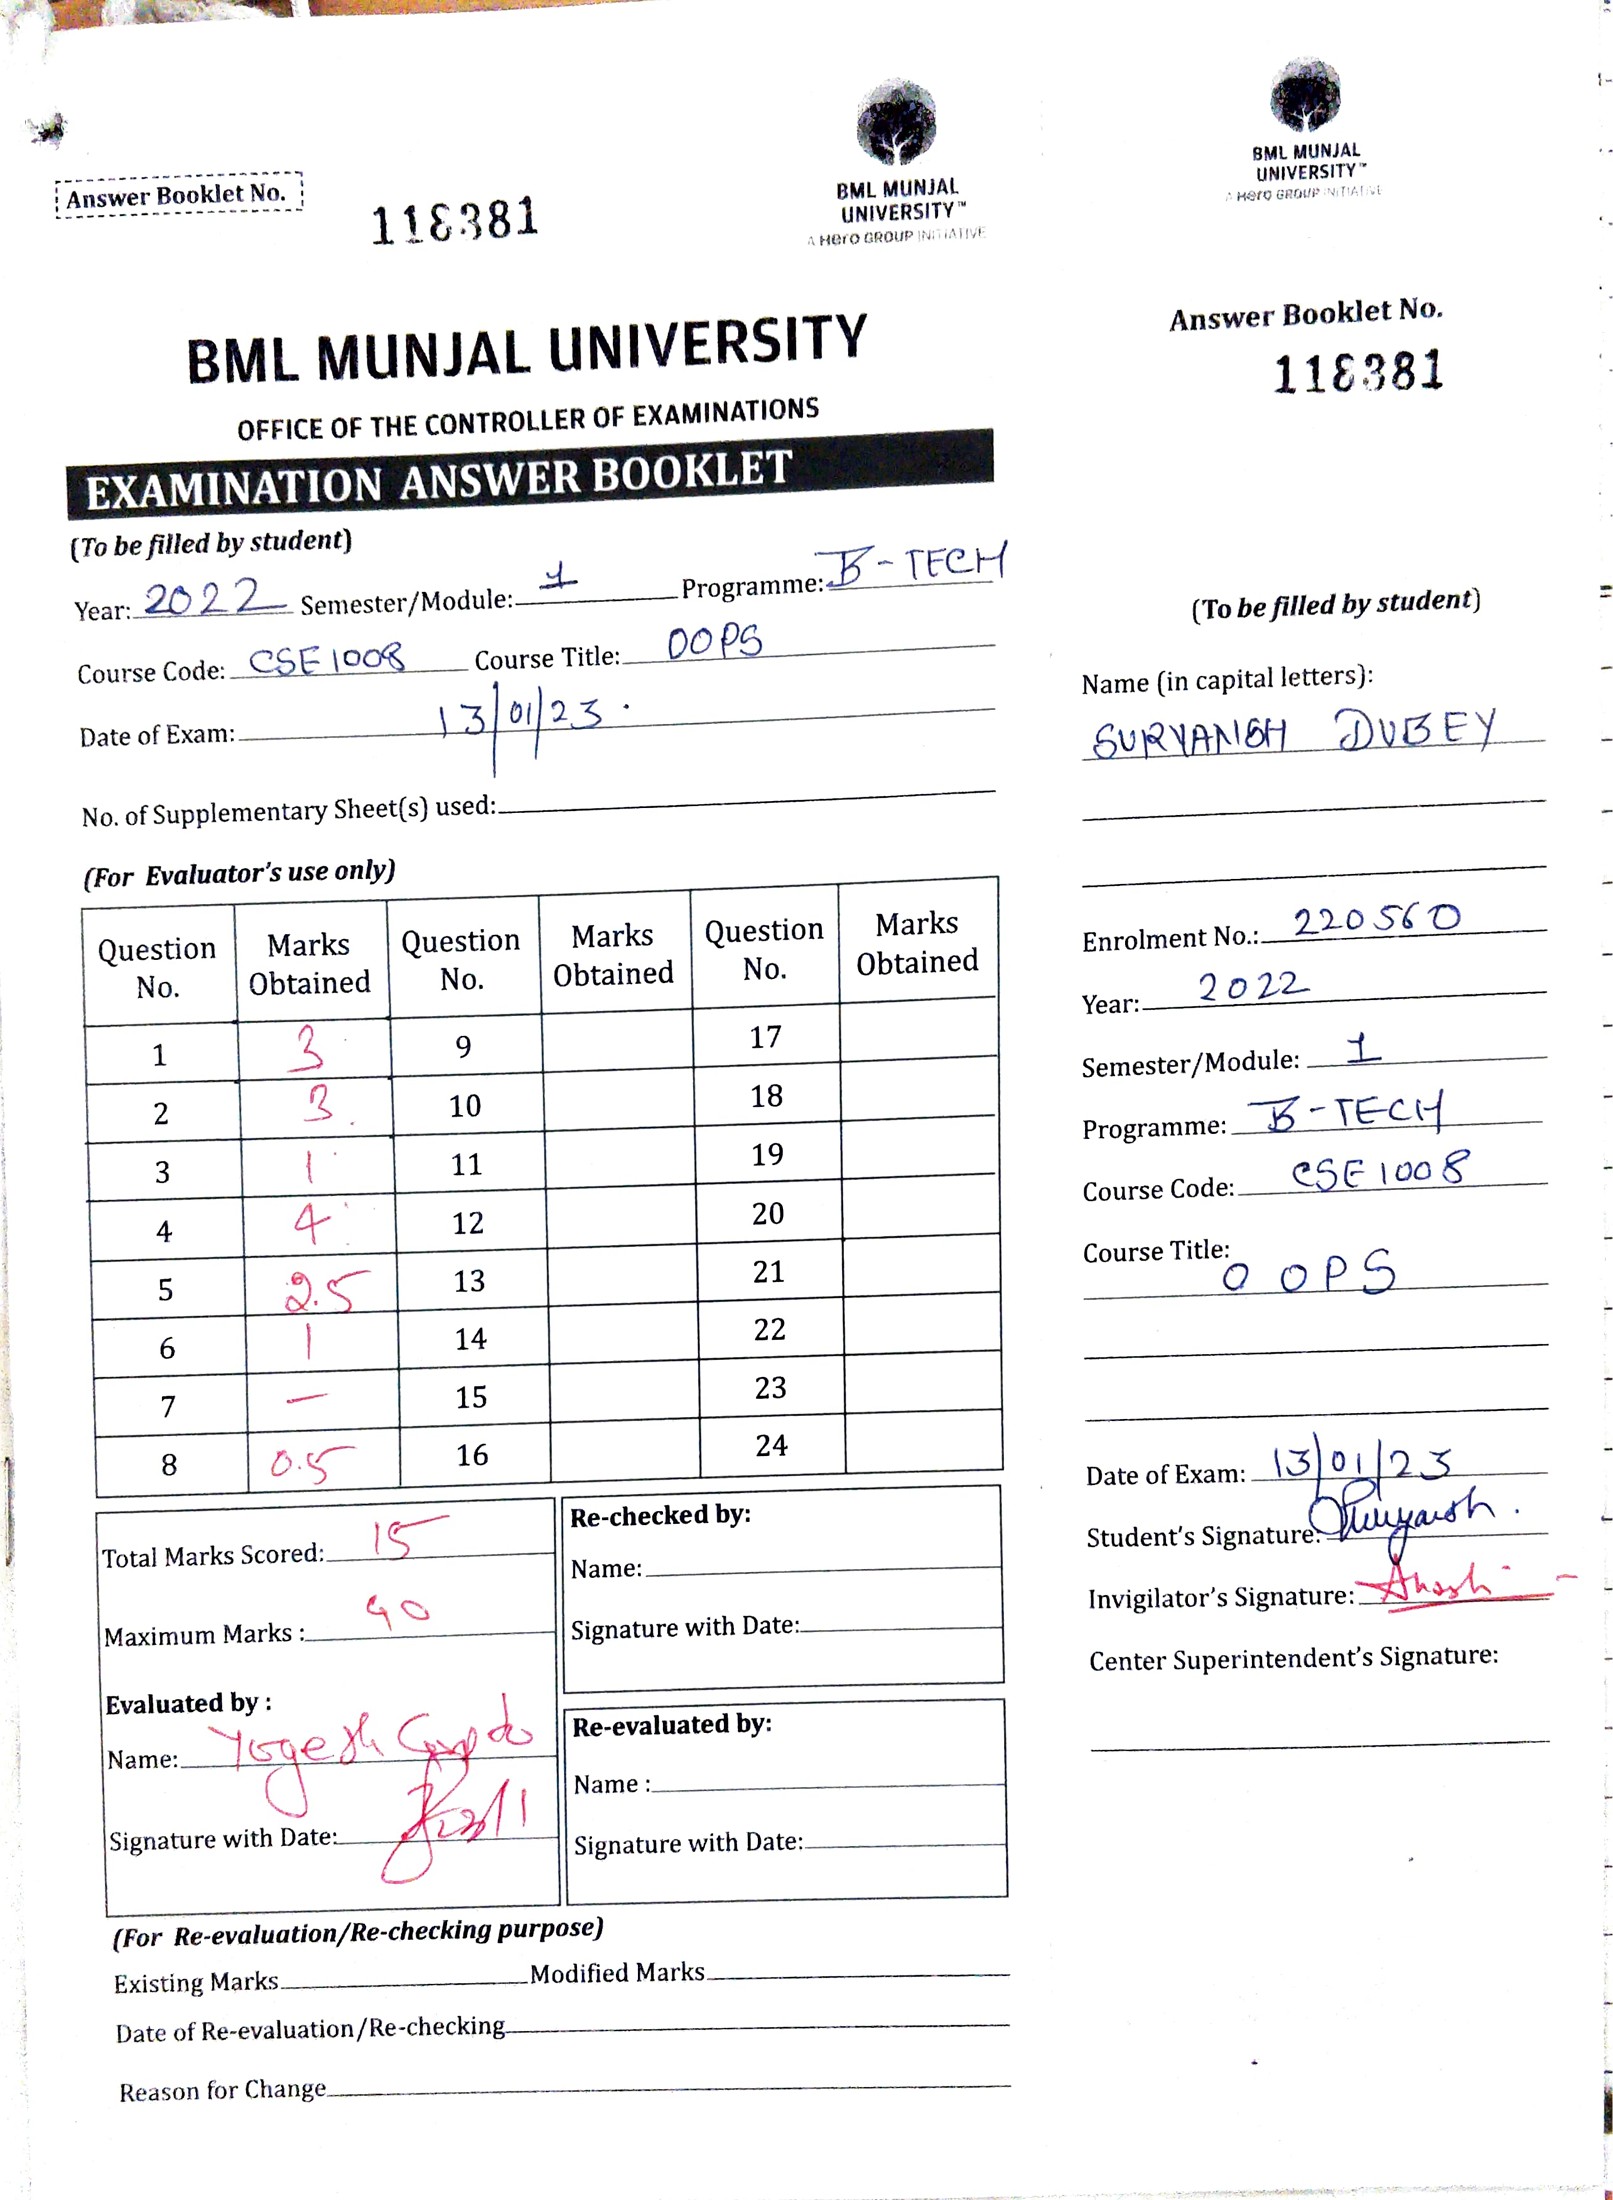 BML MUNJAL
UNIVERSITY™
A Hero GROUP INITIATIVE
Answer Booklet No.
118381
BML MUNJAL UNIVERSITY
OFFICE OF THE CONTROLLER OF EXAMINATIONS
EXAMINATION ANSWER BOOKLET
(To be filled by student)
Year: 2022 Semester/Module: 1 Programme: B-TECH
Course Code: CSE1008 Course Title: OOPS
Date of Exam: 13/01/23.
No. of Supplementary Sheet(s) used:
(For Evaluator's use only)
Question No. Marks Obtained Question No. Marks Obtained Question No. Marks Obtained
1 3 9 17
2 3 10 18
3 1 11 19
4 4 12 20
5 2.5 13 21
6 1 14 22
7 – 15 23
8 0.5 16 24
Total Marks Scored: 15
Maximum Marks : 40
Evaluated by :
Name: Yogesh Gupta
Signature with Date:
Re-checked by:
Name:
Signature with Date:
Re-evaluated by:
Name :
Signature with Date:
(For Re-evaluation/Re-checking purpose)
Existing Marks Modified Marks
Date of Re-evaluation/Re-checking
Reason for Change
BML MUNJAL
UNIVERSITY™
A Hero GROUP INITIATIVE
Answer Booklet No.
118381
(To be filled by student)
Name (in capital letters):
SURYANSH DUBEY
Enrolment No.: 220560
Year: 2022
Semester/Module: 1
Programme: B-TECH
Course Code: CSE1008
Course Title:
OOPS
Date of Exam: 13/01/23
Student's Signature: Suryansh.
Invigilator's Signature:
Center Superintendent's Signature: